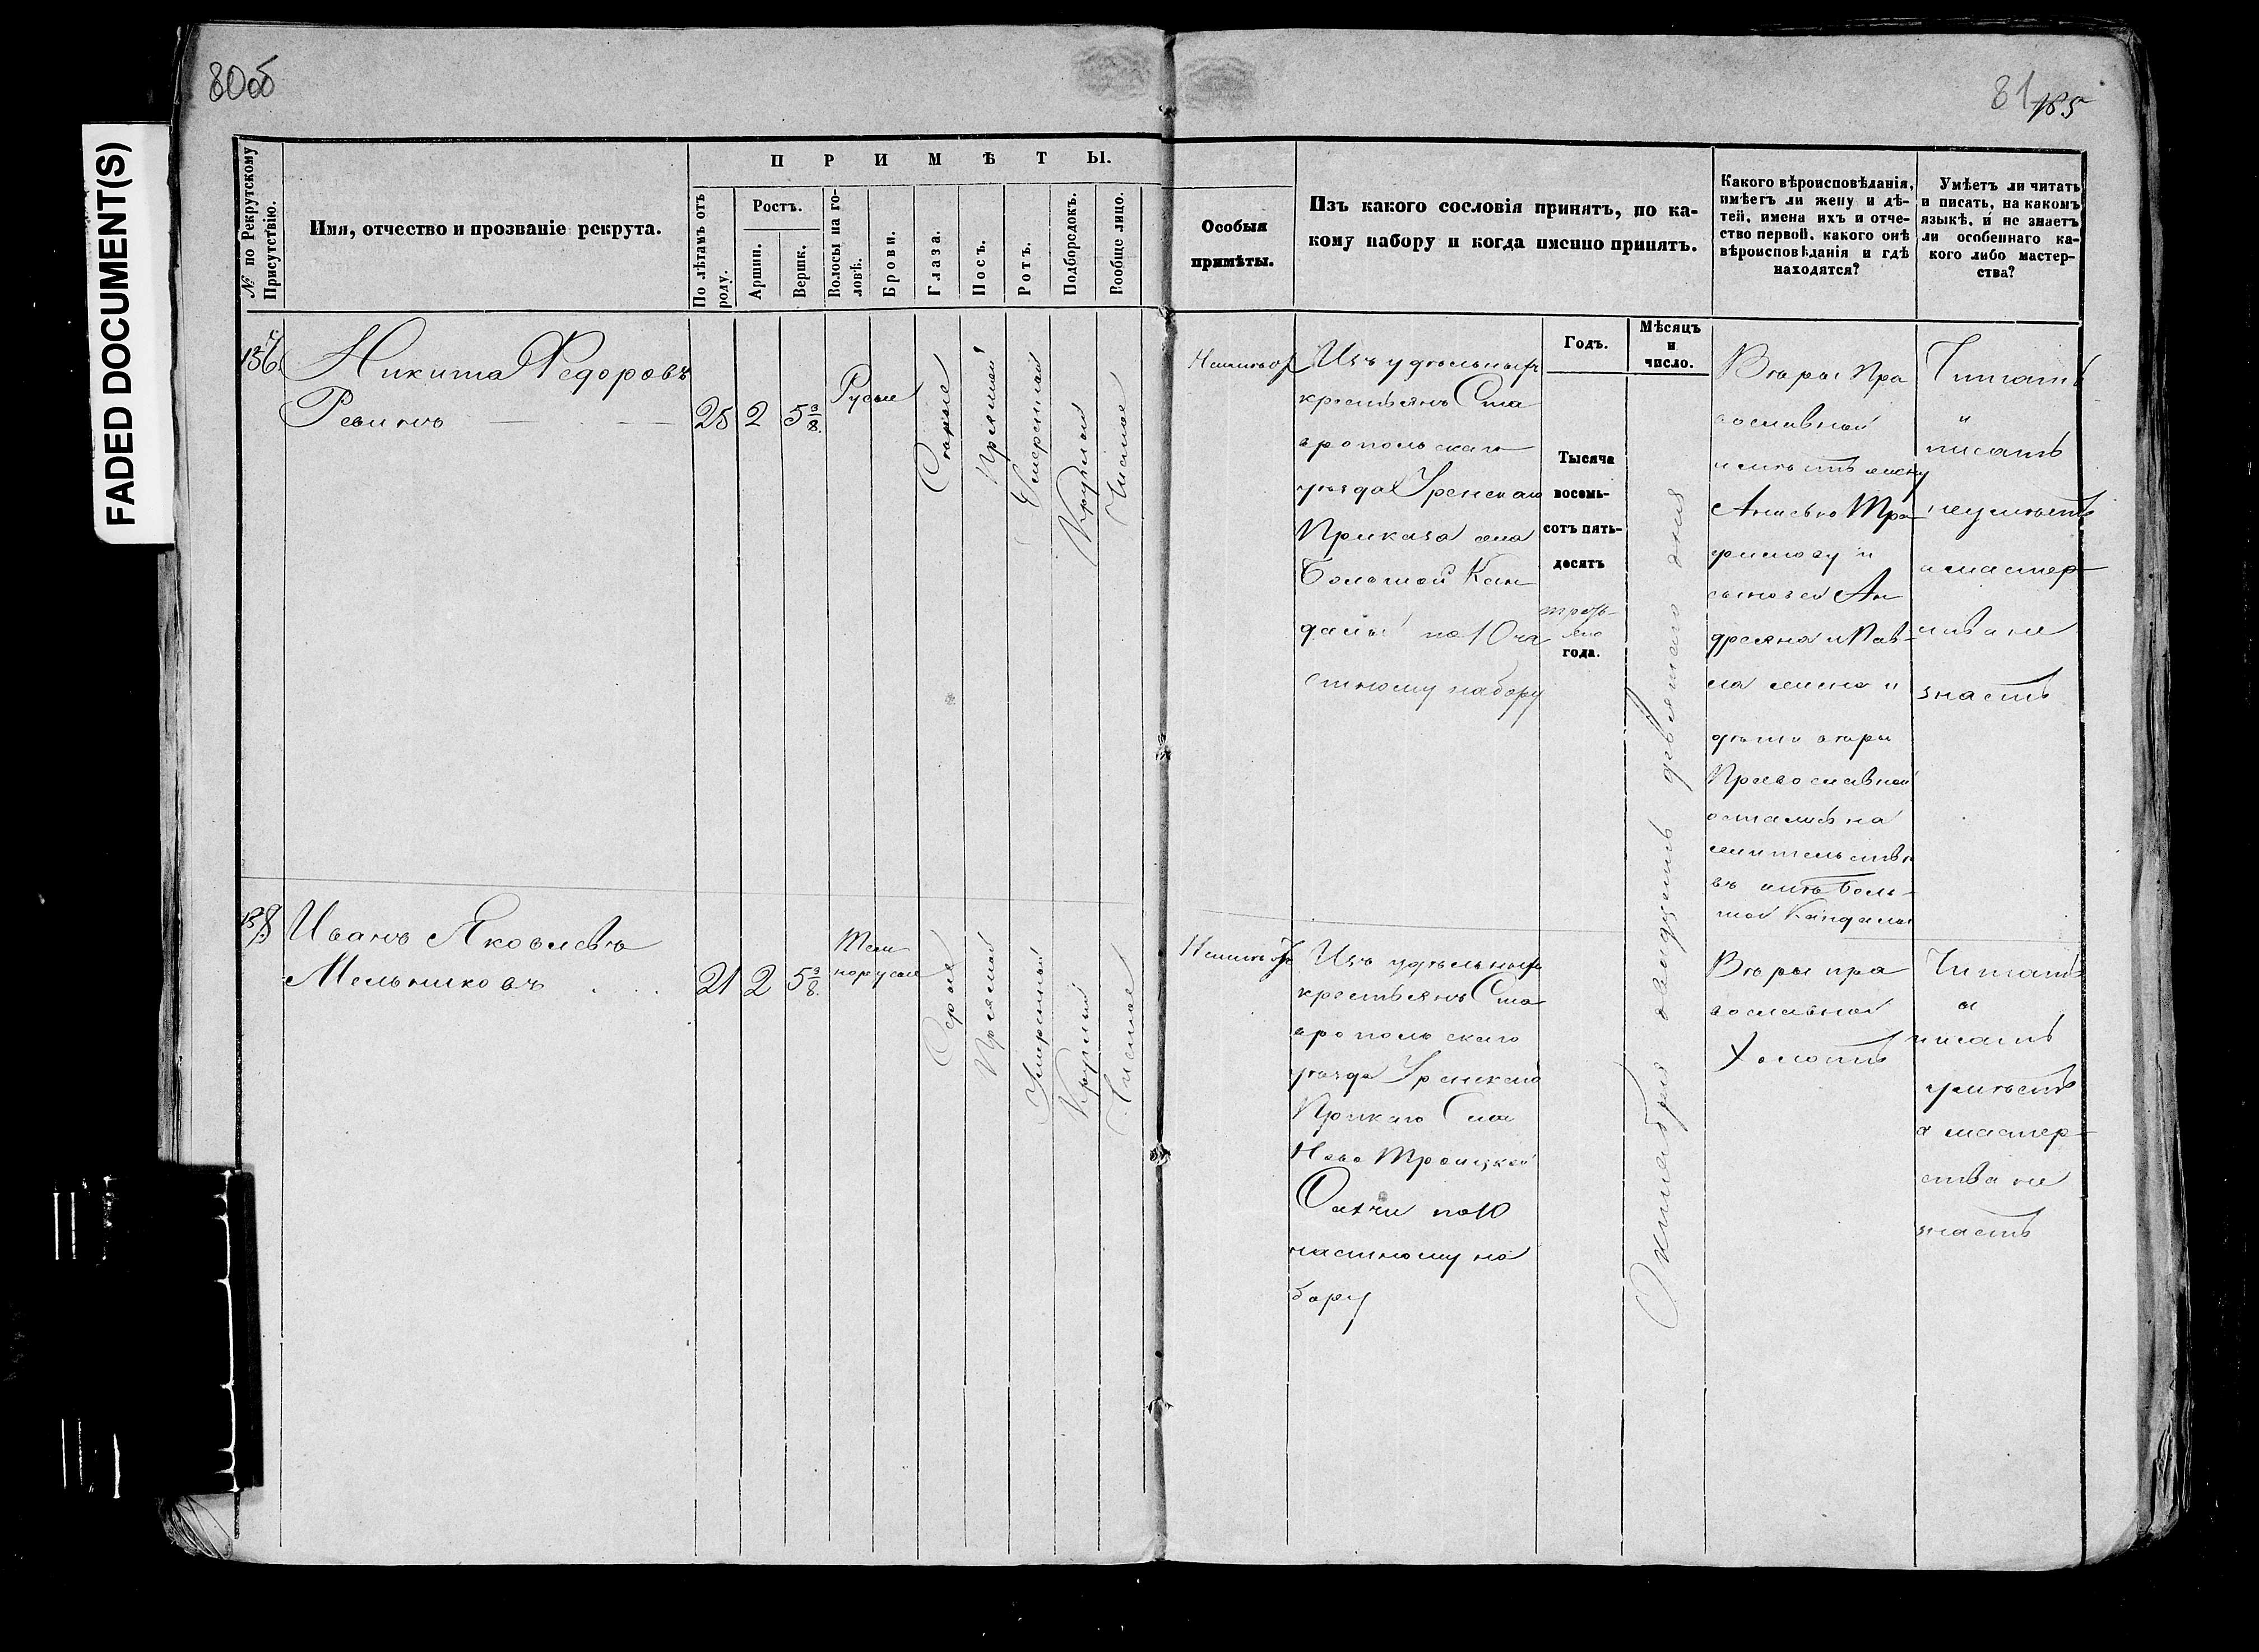 80об
81
185
FADED DOCUMENT(S)
№ по Рекрутскому Присутствію.
Имя, отчество и прозваніе рекрута.
ПРИМѢТЫ.
По лѣтамъ отъ роду.
Ростъ.
Аршин.
Вершк.
Волосы на головѣ.
Брови.
Глаза.
Носъ.
Ротъ.
Подбородокъ.
Вообще лицо.
Особыя
примѣты.
Изъ какого сословія принятъ, по ка-
кому набору и когда именно принятъ.
Годъ.
Мѣсяцъ
и
число.
Какого вѣроисповѣданія,
имѣетъ ли жену и дѣ-
тей, имена ихъ и отче-
ство первой, какого онѣ
вѣроисповѣданія и гдѣ
находятся?
Умѣетъ ли читать
и писать, на какомъ
языкѣ, и не знаетъ
ли особеннаго ка-
кого либо мастер-
ства?
Никита Ѳедоровъ
Ревинъ
25
2
5 3/8.
Русые
Карые
Прямой
Умеренный
Круглый
Чистое
Неимѣетъ
Изъ удѣльныхъ
крестьянъ Ста
вропольскаго
уѣзда Уренскаго
Приказа села
Большой Кан
далы по 10 ча
стному набору
Тысяча
восемь-
сотъ пять-
десятъ
третья-
го
года.
Октября двадцать девятаго дня
Вѣры Пра
вославной
имѣетъ жену
Анисью Тро
фимову и
сыновей Ан
дреяна и Пав-
ла жена и
дѣти вѣры
Православной
остались на
жительствѣ
въ селѣ Боль-
шой Кандалы
Читать
и
писать
неумѣетъ
и мастер-
ства не
знаетъ
Иванъ Яковлевъ
Мельниковъ
21
2
5 3/8.
Тем
норусые
Серые
Прямой
Умеренный
Круглый
Чистое
Неимѣетъ
Изъ удѣльныхъ
крестьянъ Ста
вропольскаго
уѣзда Уренскаго
Приказа Села
Ново Троицкой
Сахчи по 10
частному на
бору
Вѣры пра
вославной
Холостъ
Читать
и
писать
умѣетъ
а мастер-
ства не
знаетъ